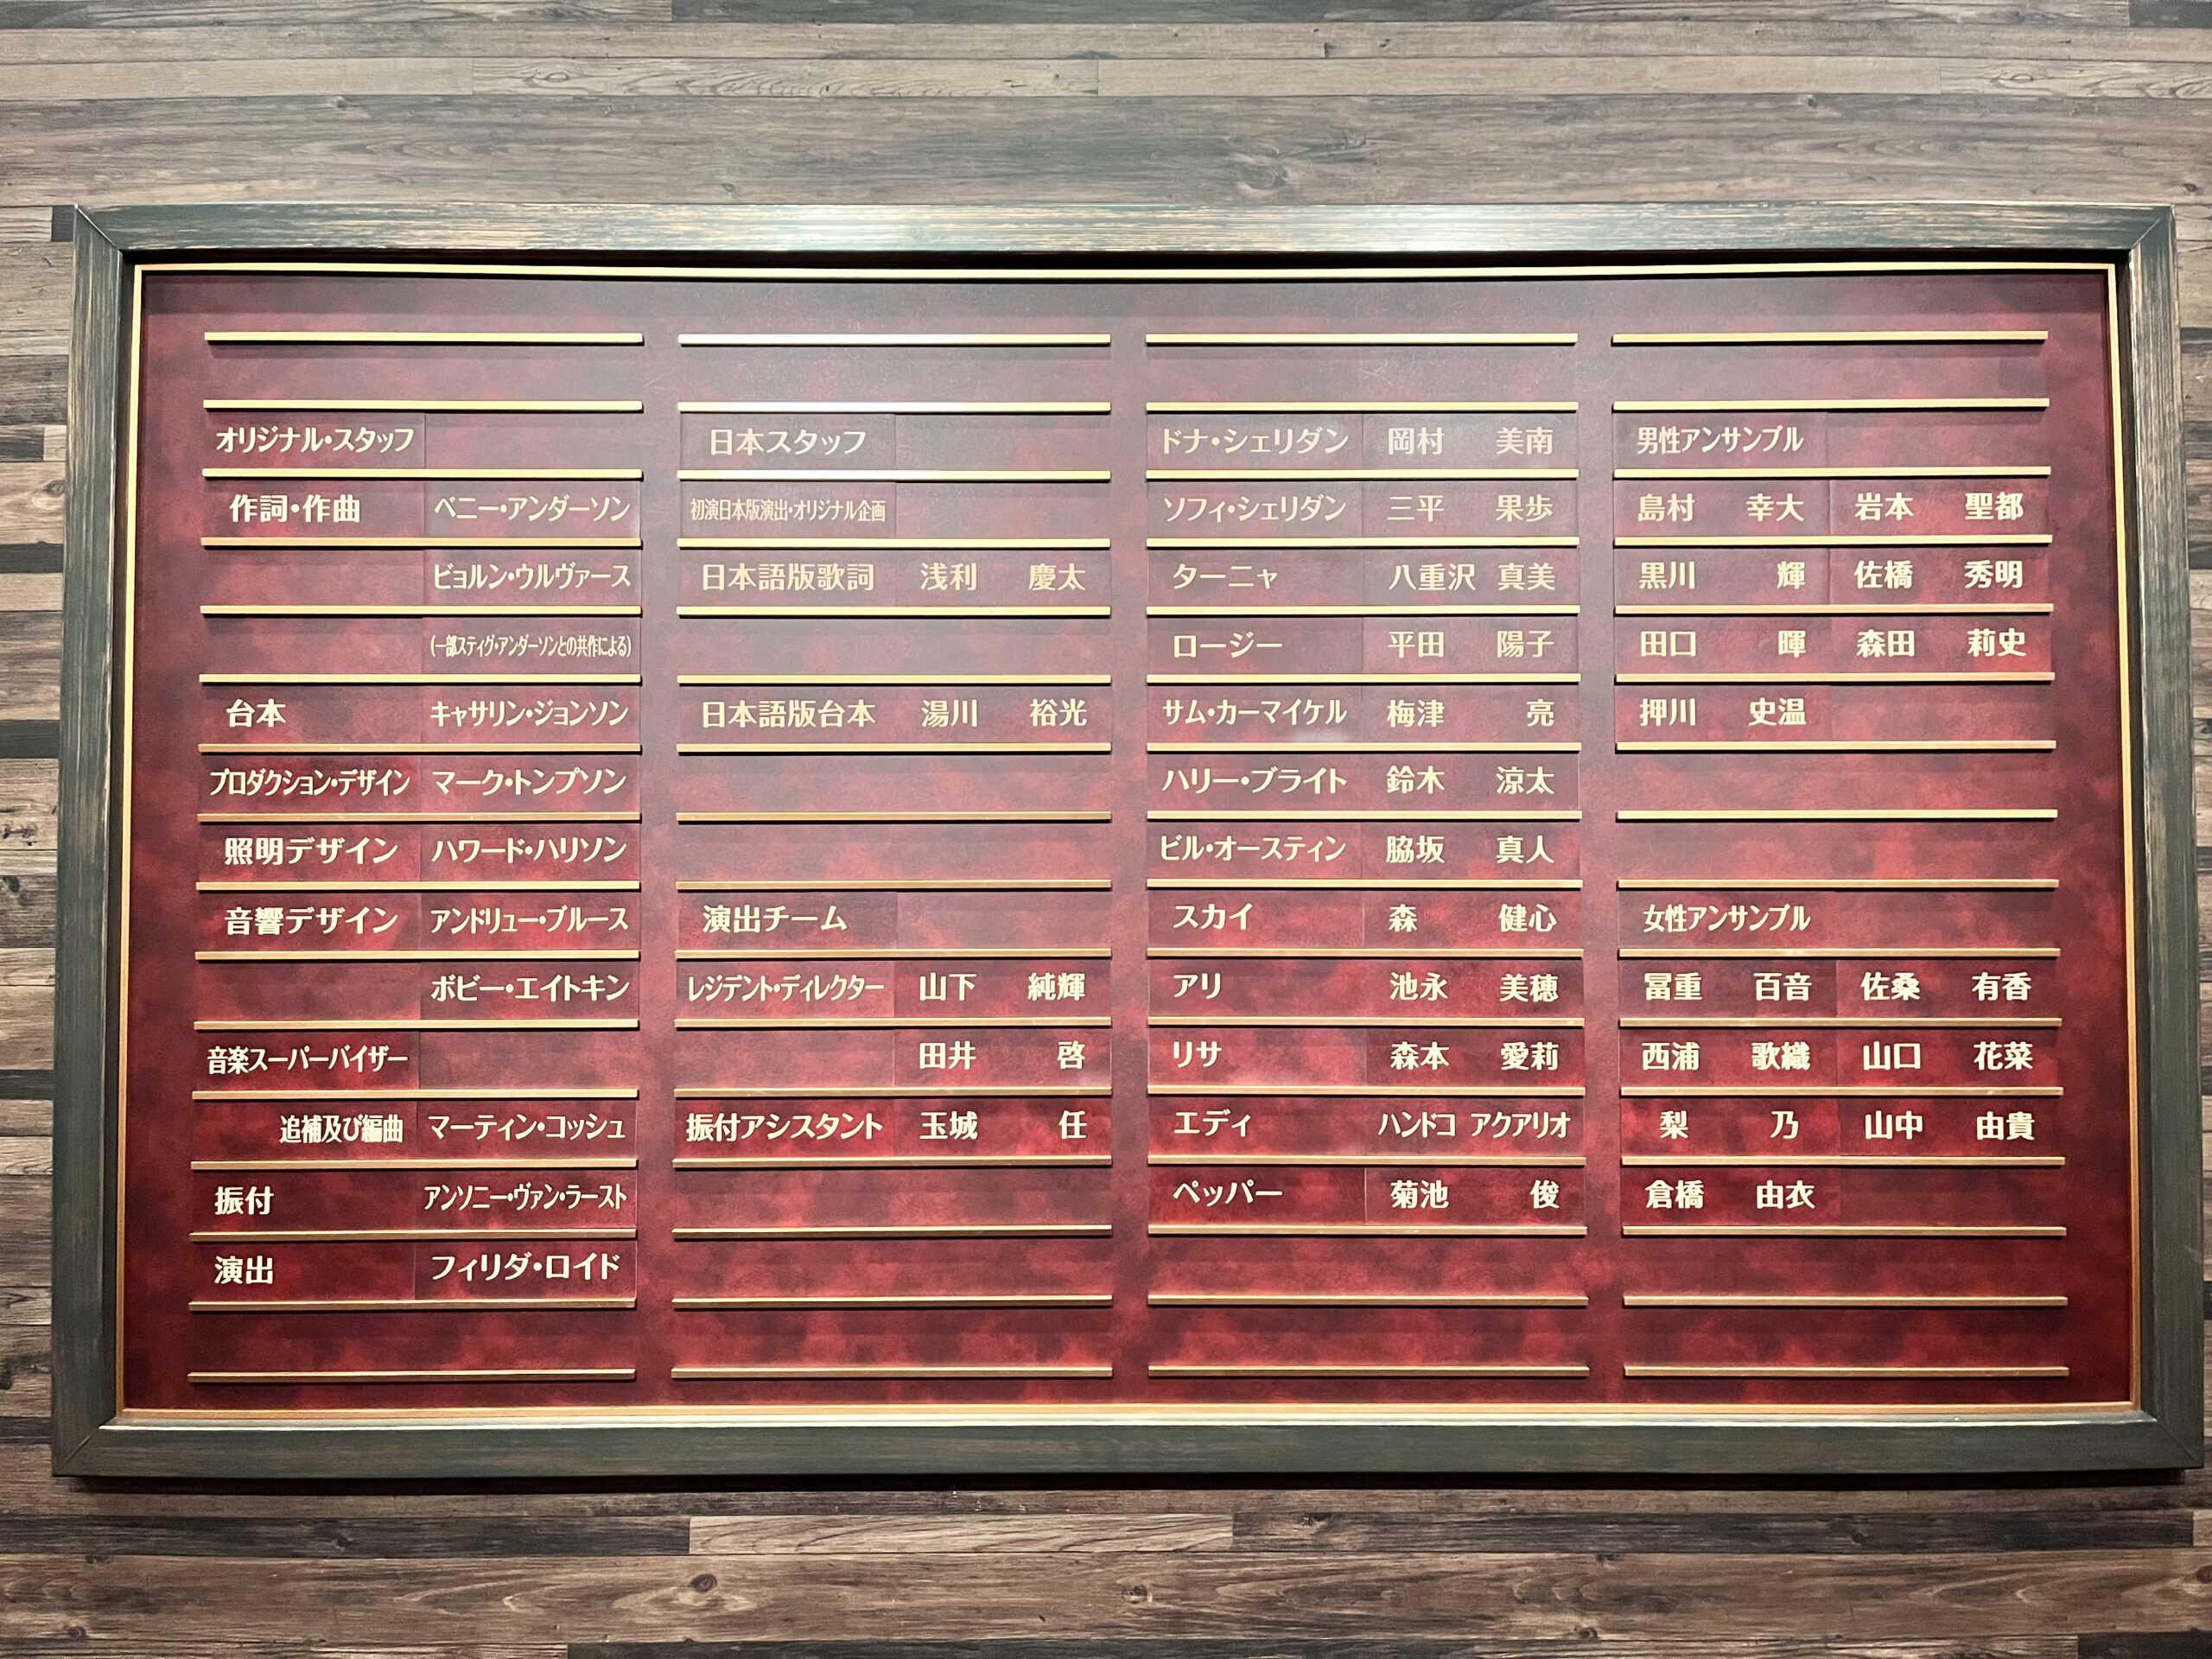 オリジナル・スタッフ
作詞・作曲 ベニー・アンダーソン
ビョルン・ウルヴァース
(一部スティグ・アンダーソンとの共作による)
台本 キャサリン・ジョンソン
プロダクション・デザイン マーク・トンプソン
照明デザイン ハワード・ハリソン
音響デザイン アンドリュー・ブルース
ボビー・エイトキン
音楽スーパーバイザー
追補及び編曲 マーティン・コッシュ
振付 アンソニー・ヴァン・ラースト
演出 フィリダ・ロイド
日本スタッフ
初演日本版演出・オリジナル企画
日本語版歌詞 浅利 慶太
日本語版台本 湯川 裕光
演出チーム
レジデント・ディレクター 山下 純輝
田井 啓
振付アシスタント 玉城 任
ドナ・シェリダン 岡村 美南
ソフィ・シェリダン 三平 果歩
ターニャ 八重沢 真美
ロージー 平田 陽子
サム・カーマイケル 梅津 亮
ハリー・ブライト 鈴木 涼太
ビル・オースティン 脇坂 真人
スカイ 森 健心
アリ 池永 美穂
リサ 森本 愛莉
エディ ハンドコ アクアリオ
ペッパー 菊池 俊
男性アンサンブル
島村 幸大 岩本 聖都
黒川 輝 佐橋 秀明
田口 暉 森田 莉史
押川 史温
女性アンサンブル
冨重 百音 佐桑 有香
西浦 歌織 山口 花菜
梨 乃 山中 由貴
倉橋 由衣